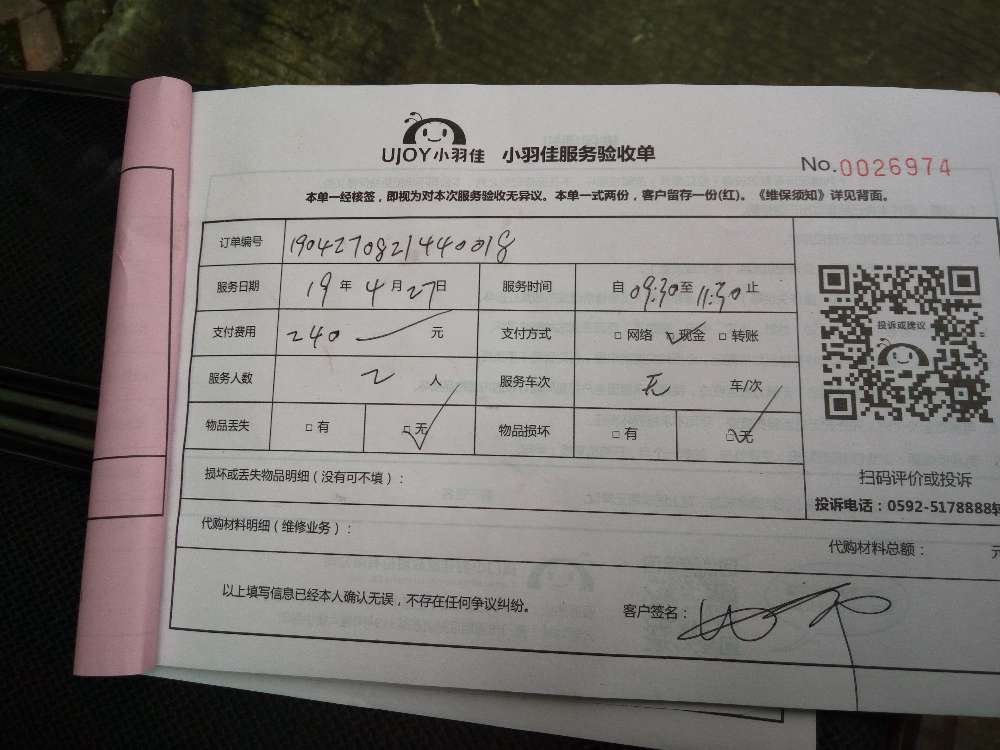 UJOY小羽佳 小羽佳服务验收单
No.0026974
本单一经核签，即视为对本次服务验收无异议。本单一式两份，客户留存一份(红)。《维保须知》详见背面。
订单编号 1904270821440018
服务日期 19年4月27日 服务时间 自09:30至11:30止
支付费用 240 元 支付方式 □网络 □现金 □转账
投诉或建议
服务人数 2 人 服务车次 无 车/次
物品丢失 □有 □无 物品损坏 □有 □无
扫码评价或投诉
损坏或丢失物品明细（没有可不填）：
投诉电话：0592-5178888转
代购材料明细（维修业务）：
代购材料总额： 元
以上填写信息已经本人确认无误，不存在任何争议纠纷。
客户签名：